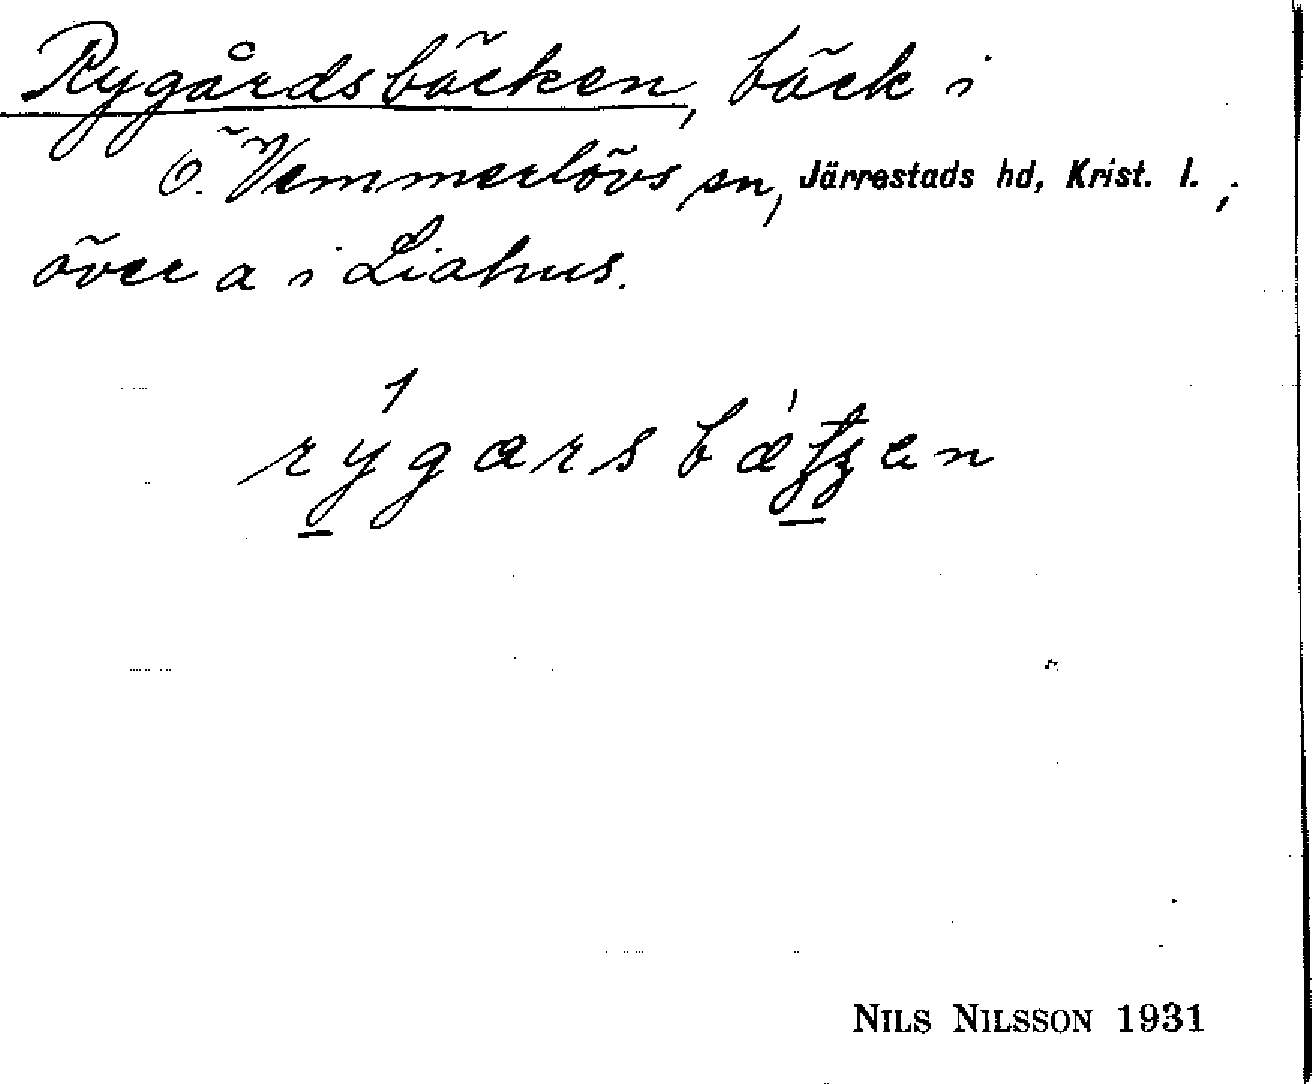 Rygårdsbäcken, bäck i
Ö. Vemmerlövs sn, Järrestads hd, Krist. l.,;
över a i Liahus.
NILS NILSSON 1931